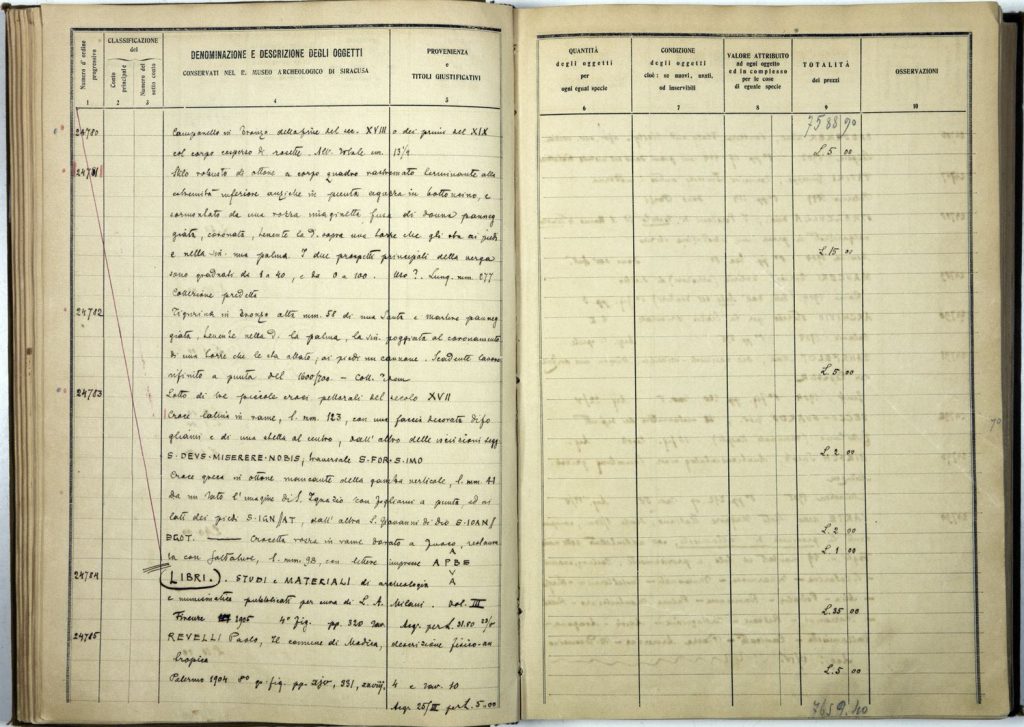 Numero d'ordine progressivo
CLASSIFICAZIONE
del
Conto principale
Numero del sotto conto
DENOMINAZIONE E DESCRIZIONE DEGLI OGGETTI
CONSERVATI NEL R. MUSEO ARCHEOLOGICO DI SIRACUSA
PROVENIENZA
e
TITOLI GIUSTIFICATIVI
1 2 3 4 5
24780 Campanello in bronzo della fine del sec. XVIII o dei primi del XIX
col corpo cosperso di rosette. Alt. totale cm. 13½
24781 Stilo robusto di ottone a corpo quadro rastremato terminante alla
estremità inferiore anziché in punta aguzza in bottoncino, e
sormontato da una rozza imaginetta fusa di donna panneg
giata, coronata, tenente la d. sopra una torre che gli sta ai piedi
e nella sin. una palma. I due prospetti principali della verga
sono graduati da 1 a 40, e da 0 a 100. Uso?. Lung. mm. 277
Collezione predetta
24782 Figurina in bronzo alta mm. 58 di una santa e martire panneg
giata, tenente nella d. la palma, la sin. poggiata al coronamento
di una torre che le sta allato, ai piedi un cannone. Scadente lavoro
rifinito a punta del 1600/700. - Coll.
24783 Lotto di tre piccole croci pettorali del secolo XVII
Croce latina in rame, l. mm. 123, con una faccia decorata di fo
gliami e di una stella al centro, dall'altro delle iscrizioni segg.
S·DEVS·MISERERE·NOBIS, traversale S·FOR·S·IMO
Croce greca in ottone mancante della gamba verticale, l. mm. 44
Da un lato l'imagine di S. Ignazio con fogliami a punta, ed ai
lati dei piedi S·IGN/AT, dall'altra S. Giovanni di Dio S·IOAN/
Crocetta rozza in rame dorato a fuoco, restaura
ta con saldature, l. mm. 98, con lettere impresse A P B E
A
V
A
24784 LIBRI. STUDI e MATERIALI di archeologia
e numismatica pubblicati per cura di L. A. Milani. Vol. III
Firenze 1905 4° fig. pp. 320 tav. Acqr. per L. 31.80
24785 REVELLI Paolo, Il comune di Modica, descrizione fisico-an
tropica
Palermo 1904 8° gr. fig. pp. 4 e tav. 10
Acqr 25/III per L. 5.00
QUANTITÀ
degli oggetti
per
ogni egual specie
CONDIZIONE
degli oggetti
cioè: se nuovi, usati,
od inservibili
VALORE ATTRIBUITO
ad ogni oggetto
ed in complesso
per le cose
di eguale specie
TOTALITÀ
dei prezzi
OSSERVAZIONI
6 7 8 9 10
7588 90
L. 5 00
L. 15 00
L. 5 00
L. 2 00
L. 2 00
L. 1 00
L. 35 00
L. 5 00
7659.40